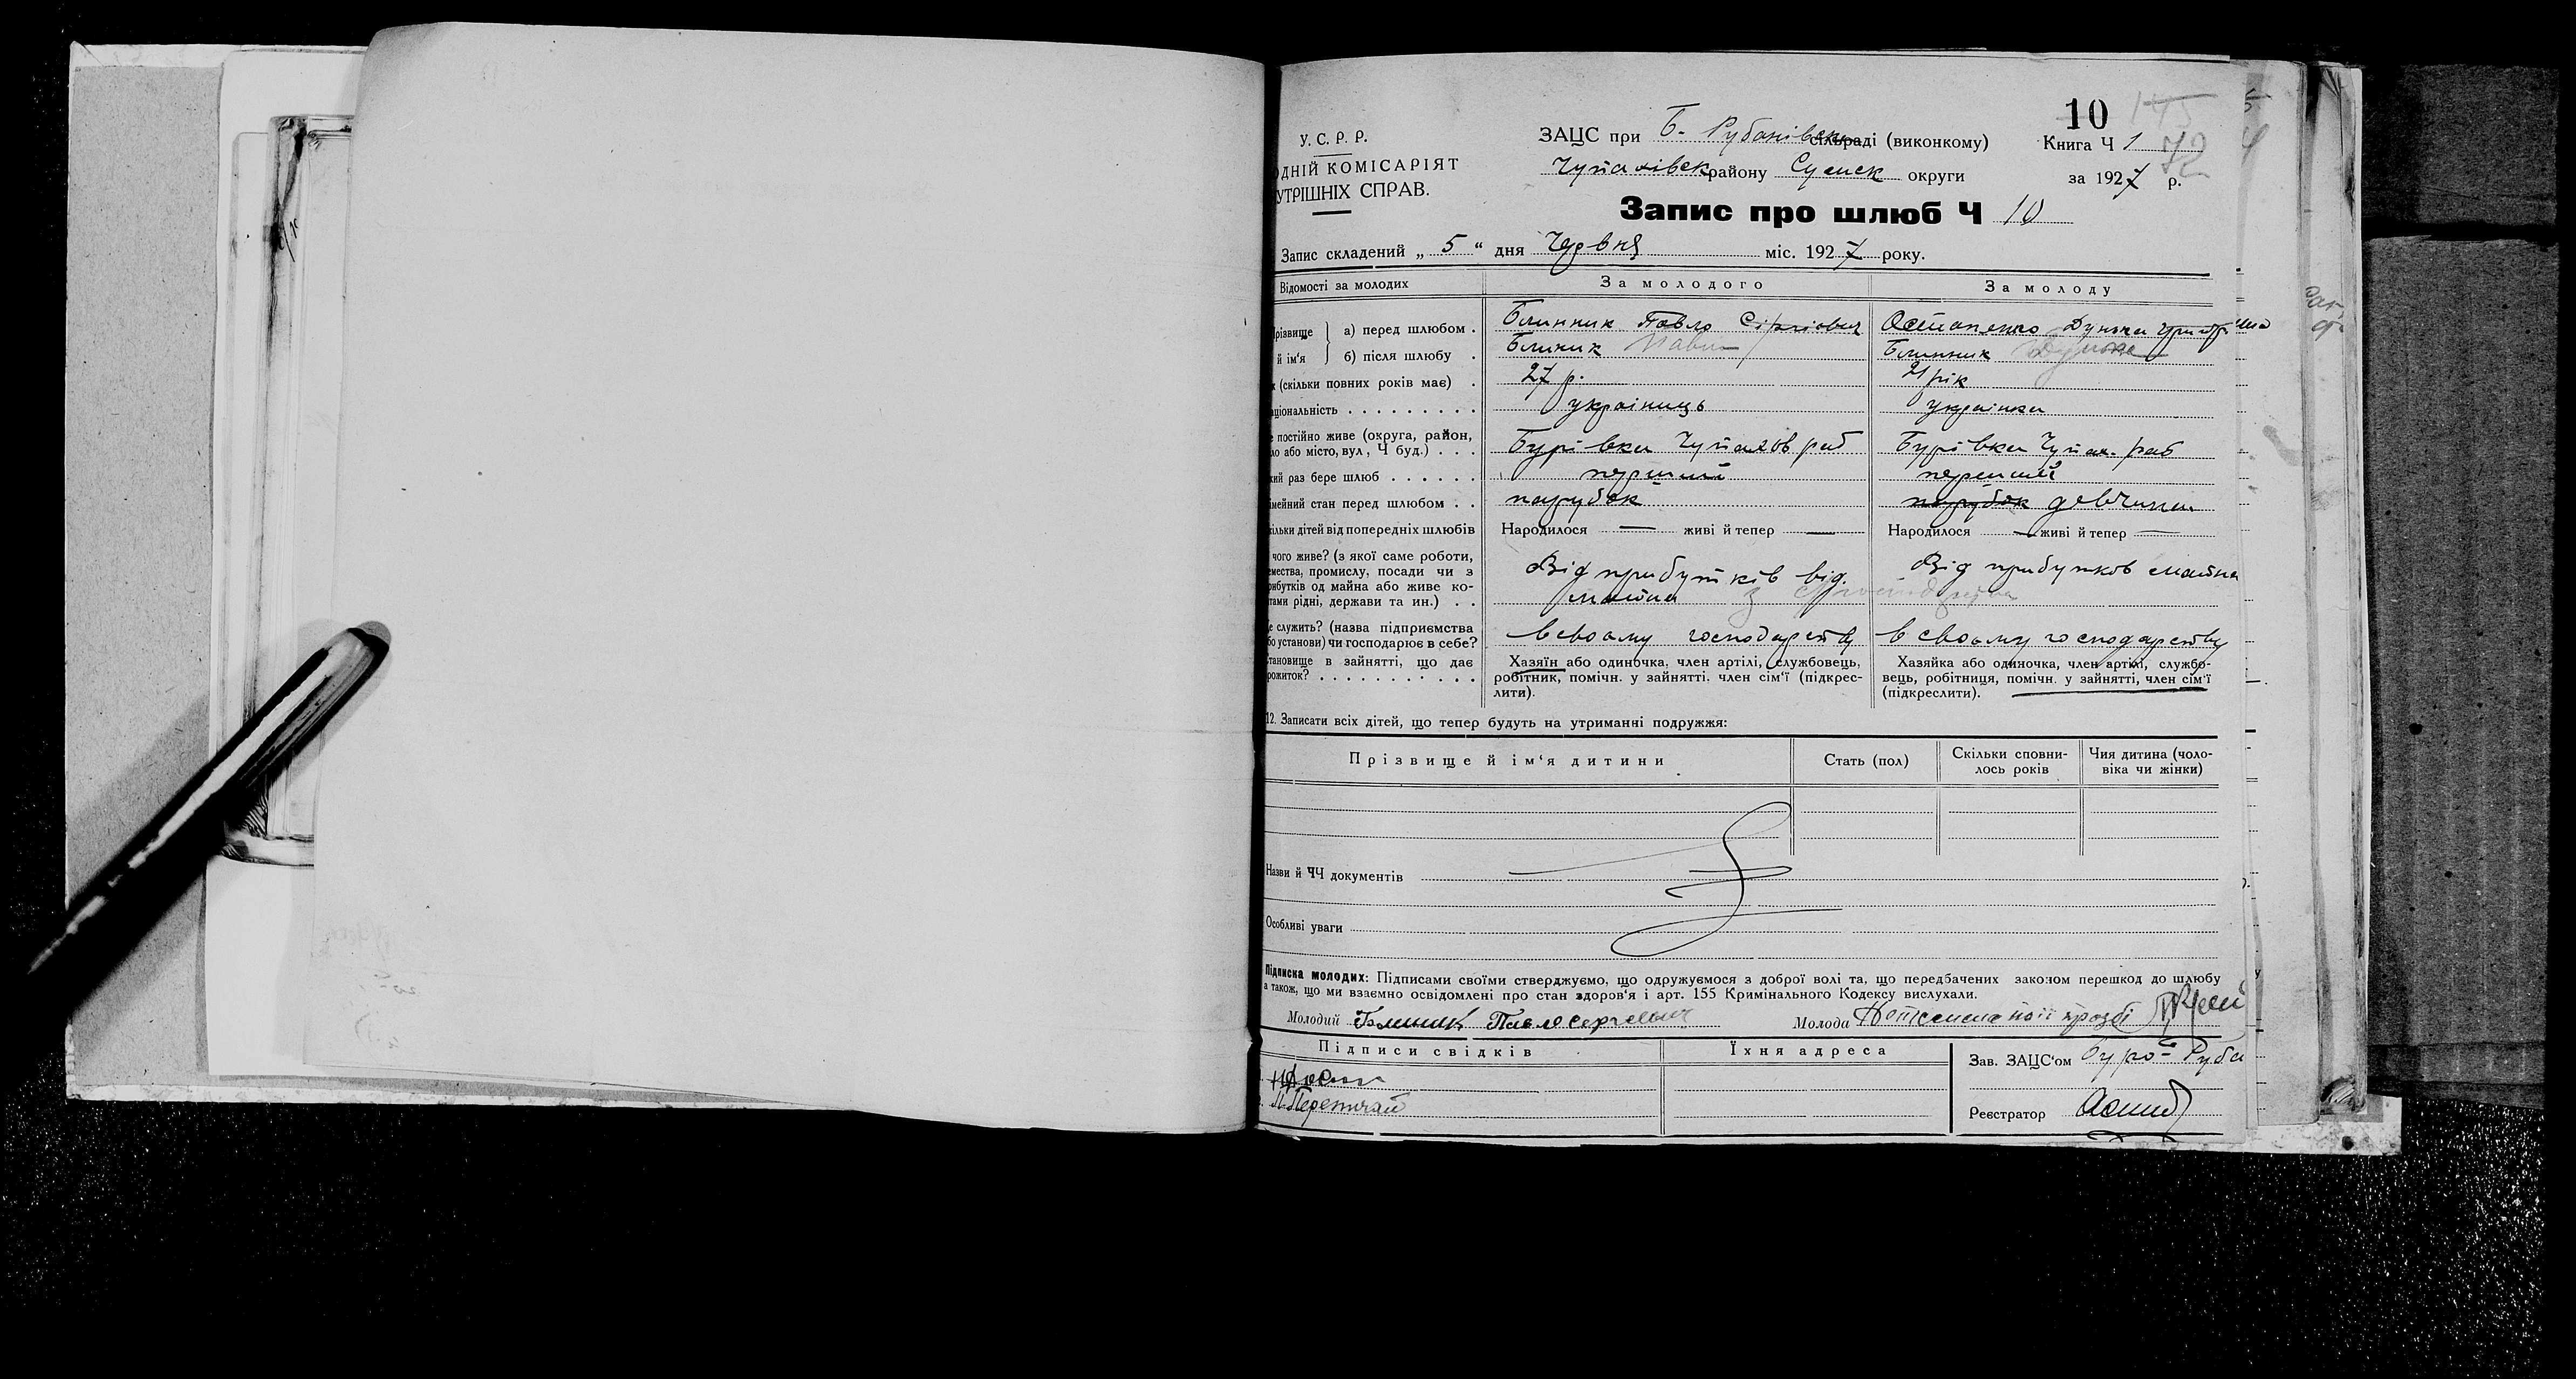 10
У. С. Р. Р.
ОДНІЙ КОМІСАРІЯТ
УТРІШНІХ СПРАВ.
ЗАЦС при Б. Рубанівськ сільраді (виконкому)
Книга Ч 1
72
Чупахівськ району Сумськ округи
за 1927 р.
Запис про шлюб Ч 10
Запис складений „ 5 “ дня Червня міс. 1927 року.
Відомості за молодих
За молодого
За молоду
різвище й ім‘я
а) перед шлюбом .
Блинник Павло Сіргіович
Остапенко Дунька
б) після шлюбу .
Блиник Павло
Блинник Дунька
к (скільки повних років має) .
27 р.
21 рік
аціональність . . . . . . . . .
украінць
украінка
е постійно живе (округа, район,
ло або місто, вул, Ч буд.) . . .
Бурівка Чупахов раб
Бурівка Чупах. раб
кий раз бере шлюб . . . . . .
перший
перший
імейний стан перед шлюбом . .
парубок
парубок девчина
кільки дітей від попередніх шлюбів
Народилося — живі й тепер —
Народилося — живі й тепер —
чого живе? (з якої саме роботи,
емества, промислу, посади чи з
рибутків од майна або живе ко-
тами рідні, держави та ин.) . .
Від прибутків від.
майна з
Від прибутков майна
е служить? (назва підприємства
бо установи) чи господарює в себе?
в своому господарству
в своому господарству
тановище в зайнятті, що дає
рожиток? . . . . . . . . . . .
Хазяїн або одиночка, член артілі, службовець,
робітник, помічн. у зайнятті. член сім‘ї (підкрес-
лити).
Хазяйка або одиночка, член артілі, службо-
вець, робітниця, помічн. у зайнятті, член сім‘ї
(підкреслити).
12. Записати всіх дітей, що тепер будуть на утриманні подружжя:
Прізвище й ім‘я дитини
Стать (пол)
Скільки сповни-
лось років
Чия дитина (чоло-
віка чи жінки)
Назви й ЧЧ документів
Особливі уваги
Підписка молодих: Підписами своїми стверджуємо, що одружуємося з доброї волі та, що передбачених законом перешкод до шлюбу
а також, що ми взаємно освідомлені про стан здоров‘я і арт. 155 Кримінального Кодексу вислухали.
Молодий Блиник Павло Сергеевич
Молода
Підписи свідків
Їхня адреса
Зав. ЗАЦС‘ом Буро- Руба
М. Перетят
Реєстратор